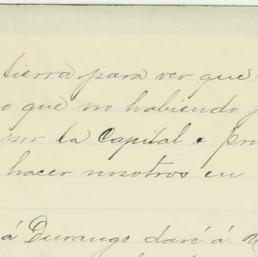 tierra para ver que
o que no habiendo
por la Capital
hacer nosotros en
á Durango daré á